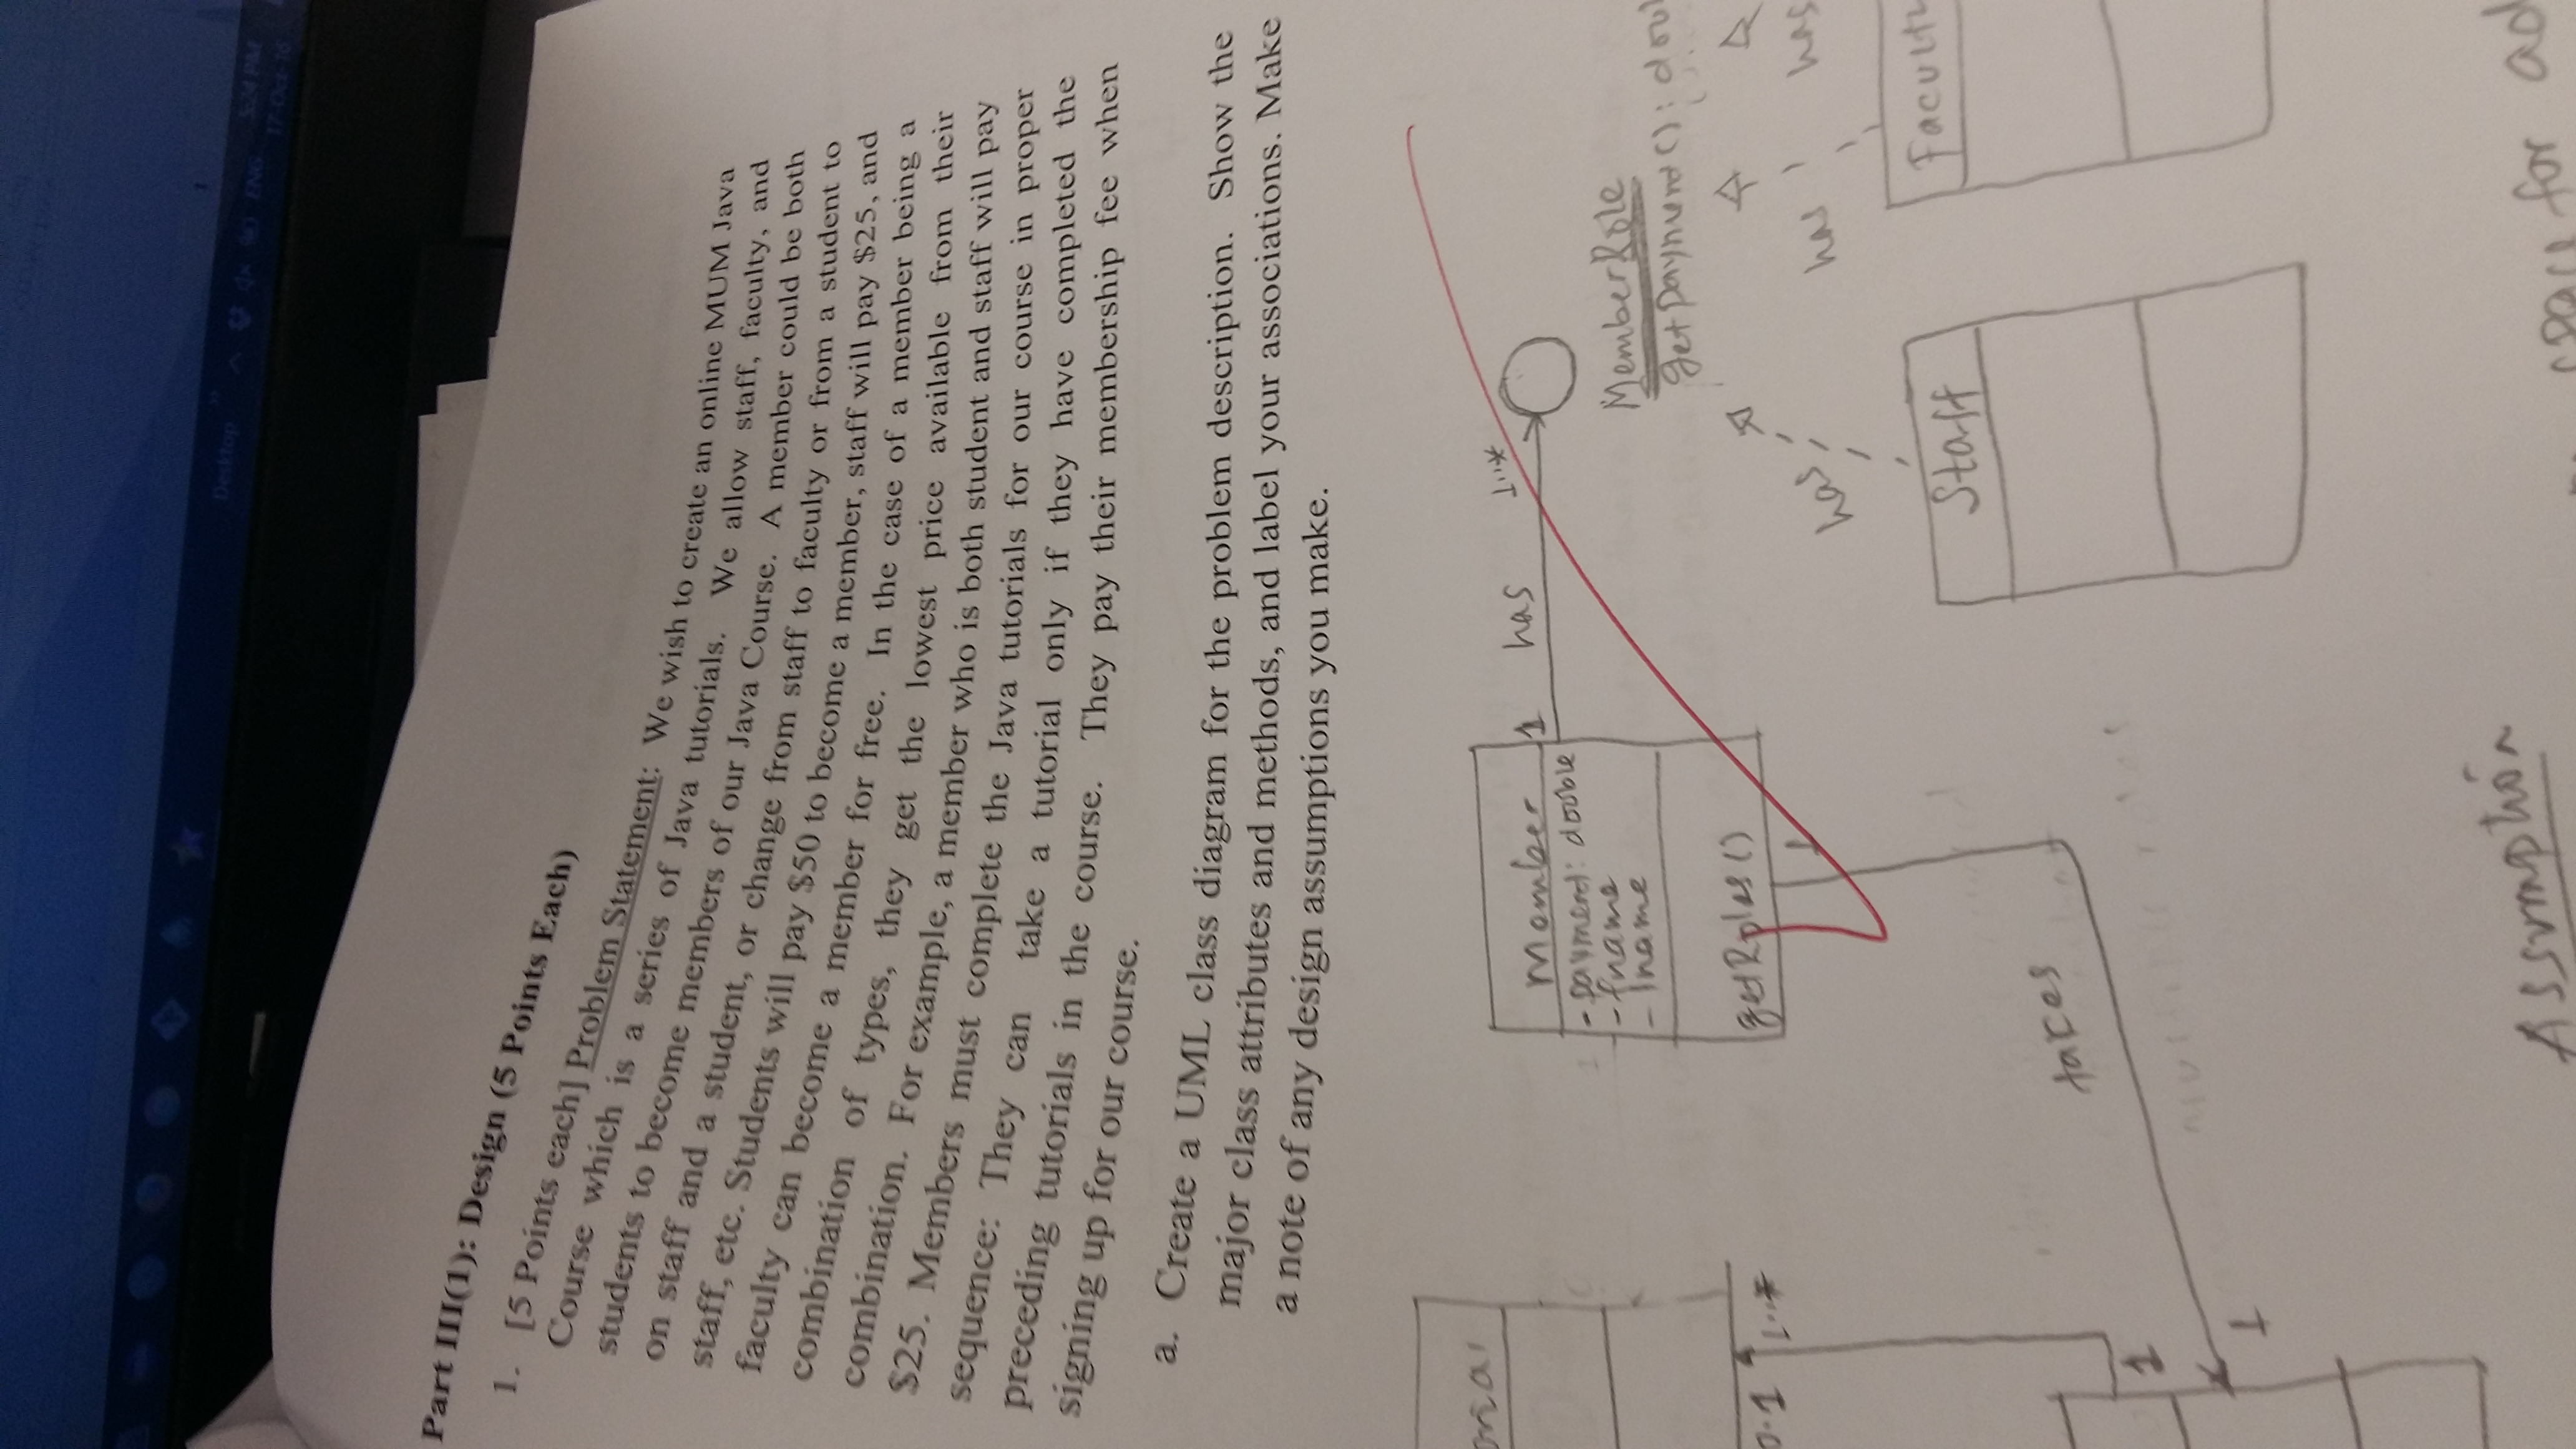 Desktop
ENG
5:24 PM
17-Oct-16
Part III(1): Design (5 Points Each)
1. [5 Points each] Problem Statement: We wish to create an online MUM Java
Course which is a series of Java tutorials. We allow staff, faculty, and
students to become members of our Java Course. A member could be both
on staff and a student, or change from staff to faculty or from a student to
staff, etc. Students will pay $50 to become a member, staff will pay $25, and
faculty can become a member for free. In the case of a member being a
combination of types, they get the lowest price available from their
combination. For example, a member who is both student and staff will pay
$25. Members must complete the Java tutorials for our course in proper
sequence: They can take a tutorial only if they have completed the
preceding tutorials in the course. They pay their membership fee when
signing up for our course.
a. Create a UML class diagram for the problem description. Show the
major class attributes and methods, and label your associations. Make
a note of any design assumptions you make.
Member
1 has 1..*
- payment: double
- fname
- lname
MemberRole
getPayment():
getRoles()
1
1..*
has
has
has
Staff
takes
1
1
Assumption
space for